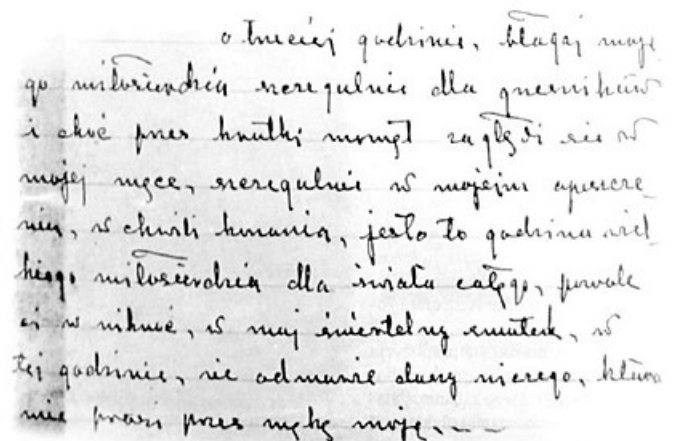 o trzeciej godzinie, błagaj moje
go miłosierdzia szczegulnie dla grzeszników
i choć przez krutki moment zagłębi sie w
mojej męce, szczegulnie w mojem opuszcze
niu, w chwili konania, jesto to godzina wiel
kiego miłosierdzia dla świata całego, pozwole
ci w niknąć, w mój śmiertelny smutek, w
tej godzinie, nie odmuwie duszy niczego, która
mie prosi przez mękę moję. — —